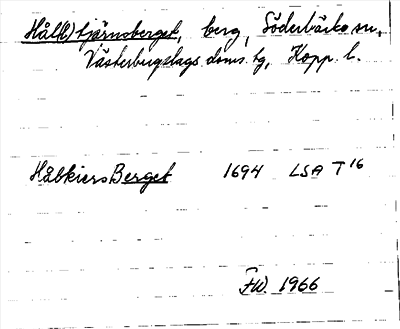 Hål(l)tjärnsberget, berg, Söderbärke sn,
Västerbergslags doms. tg, Kopp. l.
HålkiersBerget 1694 LSA T 16
F.W. 1966